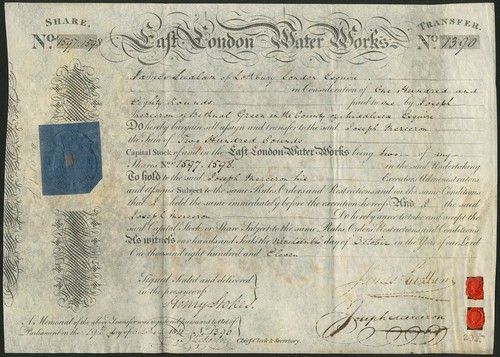 SHARE.
TRANSFER.
No. 1597-1598
East London Water Works
No. 1390
James Ludlam of Lothbury London Esquire
in Consideration of One Hundred and
Eighty Pounds paid to me by Joseph
Merceron of Bethnal Green in the County of Middlesex Esquire
Do hereby bargain sell assign and transfer to the said Joseph Merceron
the Sum of Two Hundred Pounds
Capital Stock of and in the East-London-Water-Works being two of my
Shares No. 1597-1598. in the said Undertaking
To hold to the said Joseph Merceron his Executors Administrators
and Assigns Subject to the same Rules Orders and Restrictions and on the same Conditions
that I held the same immediately before the execution hereof And I the said
Joseph Merceron Do hereby agree to take and accept the
said Capital Stock or Share Subject to the same Rules Orders Restrictions and Conditions
As witness our hands and Seals the day of October in the Year of our Lord
One thousand eight hundred and Eleven
Signed Sealed and delivered
in the presence of
Henry Stokes
James Ludlam
Joseph Merceron
A Memorial of the above Transfer was pursuant to Act of
Parliament on the day of 1811 No. 1390
Chief Clerk & Secretary